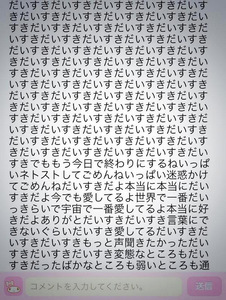 だいすきだいすきだいすきだいすきだいす
きだいすきだいすきだいすきだいすきだい
すきだいすきだいすきだいすきだいすきだ
いすきだいすきだいすきだいすきだいすき
だいすきだいすきだいすきだいすきだいす
きだいすきだいすきだいすきだいすきだい
すきだいすきだいすきだいすきだいすきだ
いすきだいすきだいすきだいすきだいすき
だいすきだいすきだいすきだいすきだいす
きだいすきだいすきだいすきだいすきだい
すきだいすきだいすきだいすきだいすきだ
いすきだいすきだいすきだいすきだいすき
だいすきだいすきだいすきだいすきだいす
きでももう今日で終わりにするねいっぱ
いネトストしてごめんねいっぱい迷惑かけ
てごめんねだいすきだよ本当に本当にだい
すきだよ今でも愛してるよ世界で一番だい
っきらいで宇宙で一番愛してるよ本当に好
きだよありがとだいすきだいすき言葉にで
きないぐらいだいすき愛してるだいすきだ
いすきだいすきもっと声聞きたかっただい
すきだいすきだいすき変態なところもだい
すきだったばかなところも弱いところも通
コメントを入力してください。
送信